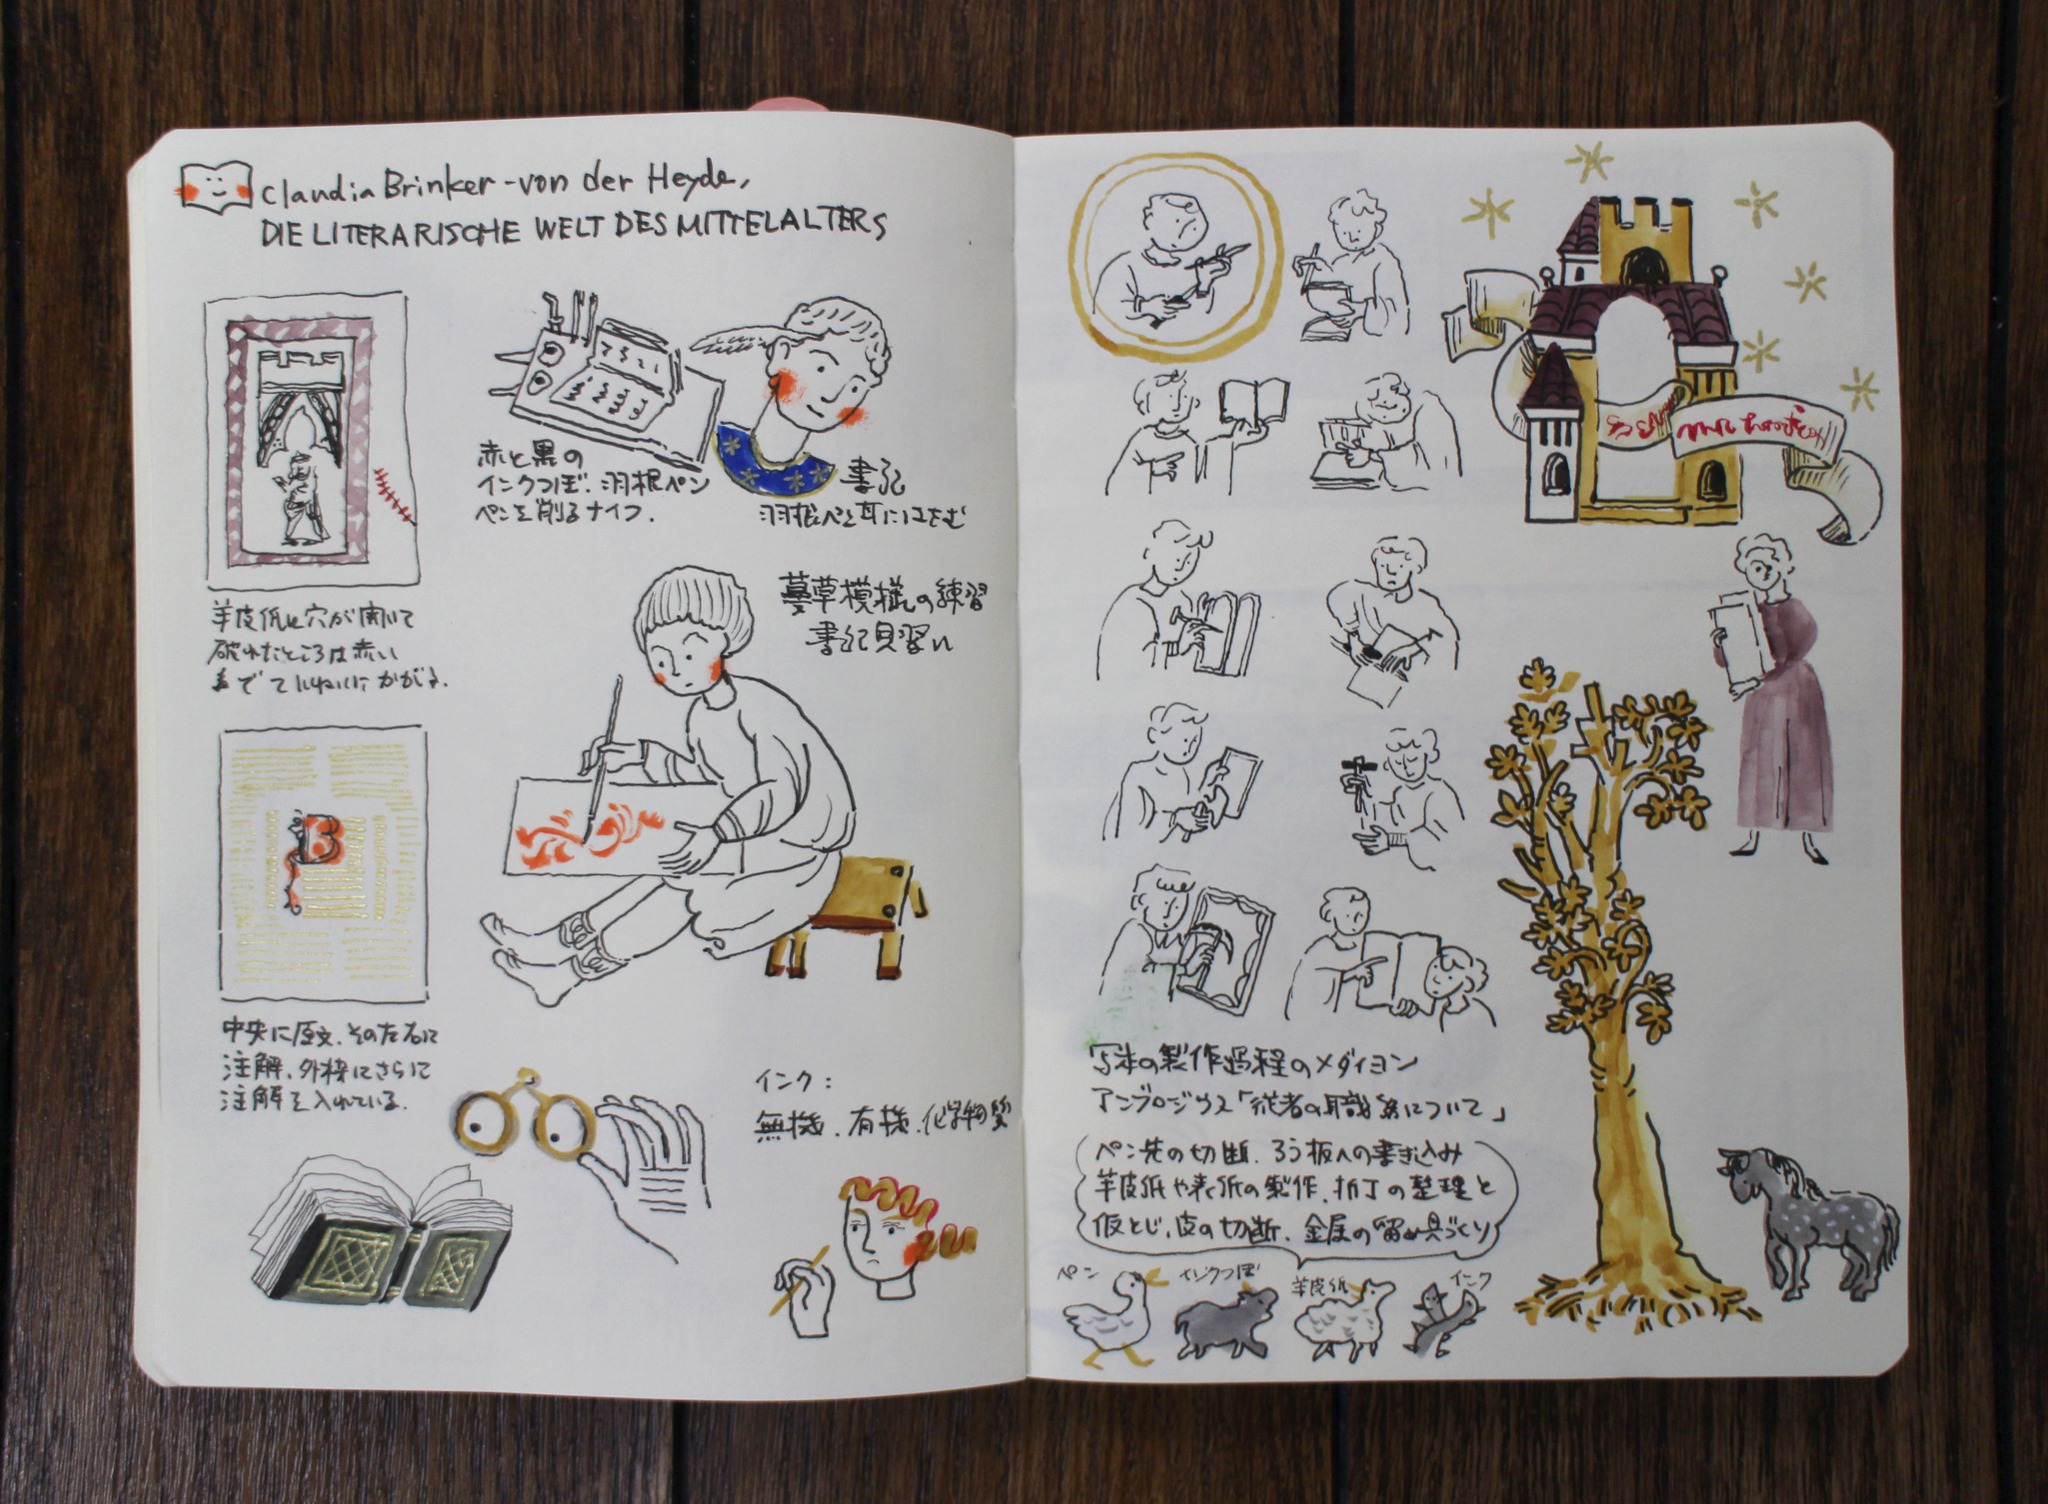 Claudia Brinker-von der Heyde,
DIE LITERARISCHE WELT DES MITTELALTERS
赤と黒の
インクつぼ、羽根ペン
ペンを削るナイフ.
書記
羽根ペンを耳にはさむ
羊皮紙に穴が開いて
破れたところは赤い
までていねいにかがる.
蔓草模様の練習
書記見習い
中央に原文.その左右に
注解、外枠にさらに
注解を入れている.
インク:
無機、有機、化学物質
写本の製作過程のメダイヨン
アンブロジウス「従者の職務について」
ペン先の切断、ろう板への書き込み
羊皮紙や表紙の製作、折丁の整理と
仮とじ、皮の切断、金属の留め具づくり
ペン
インクつぼ
羊皮紙
インク